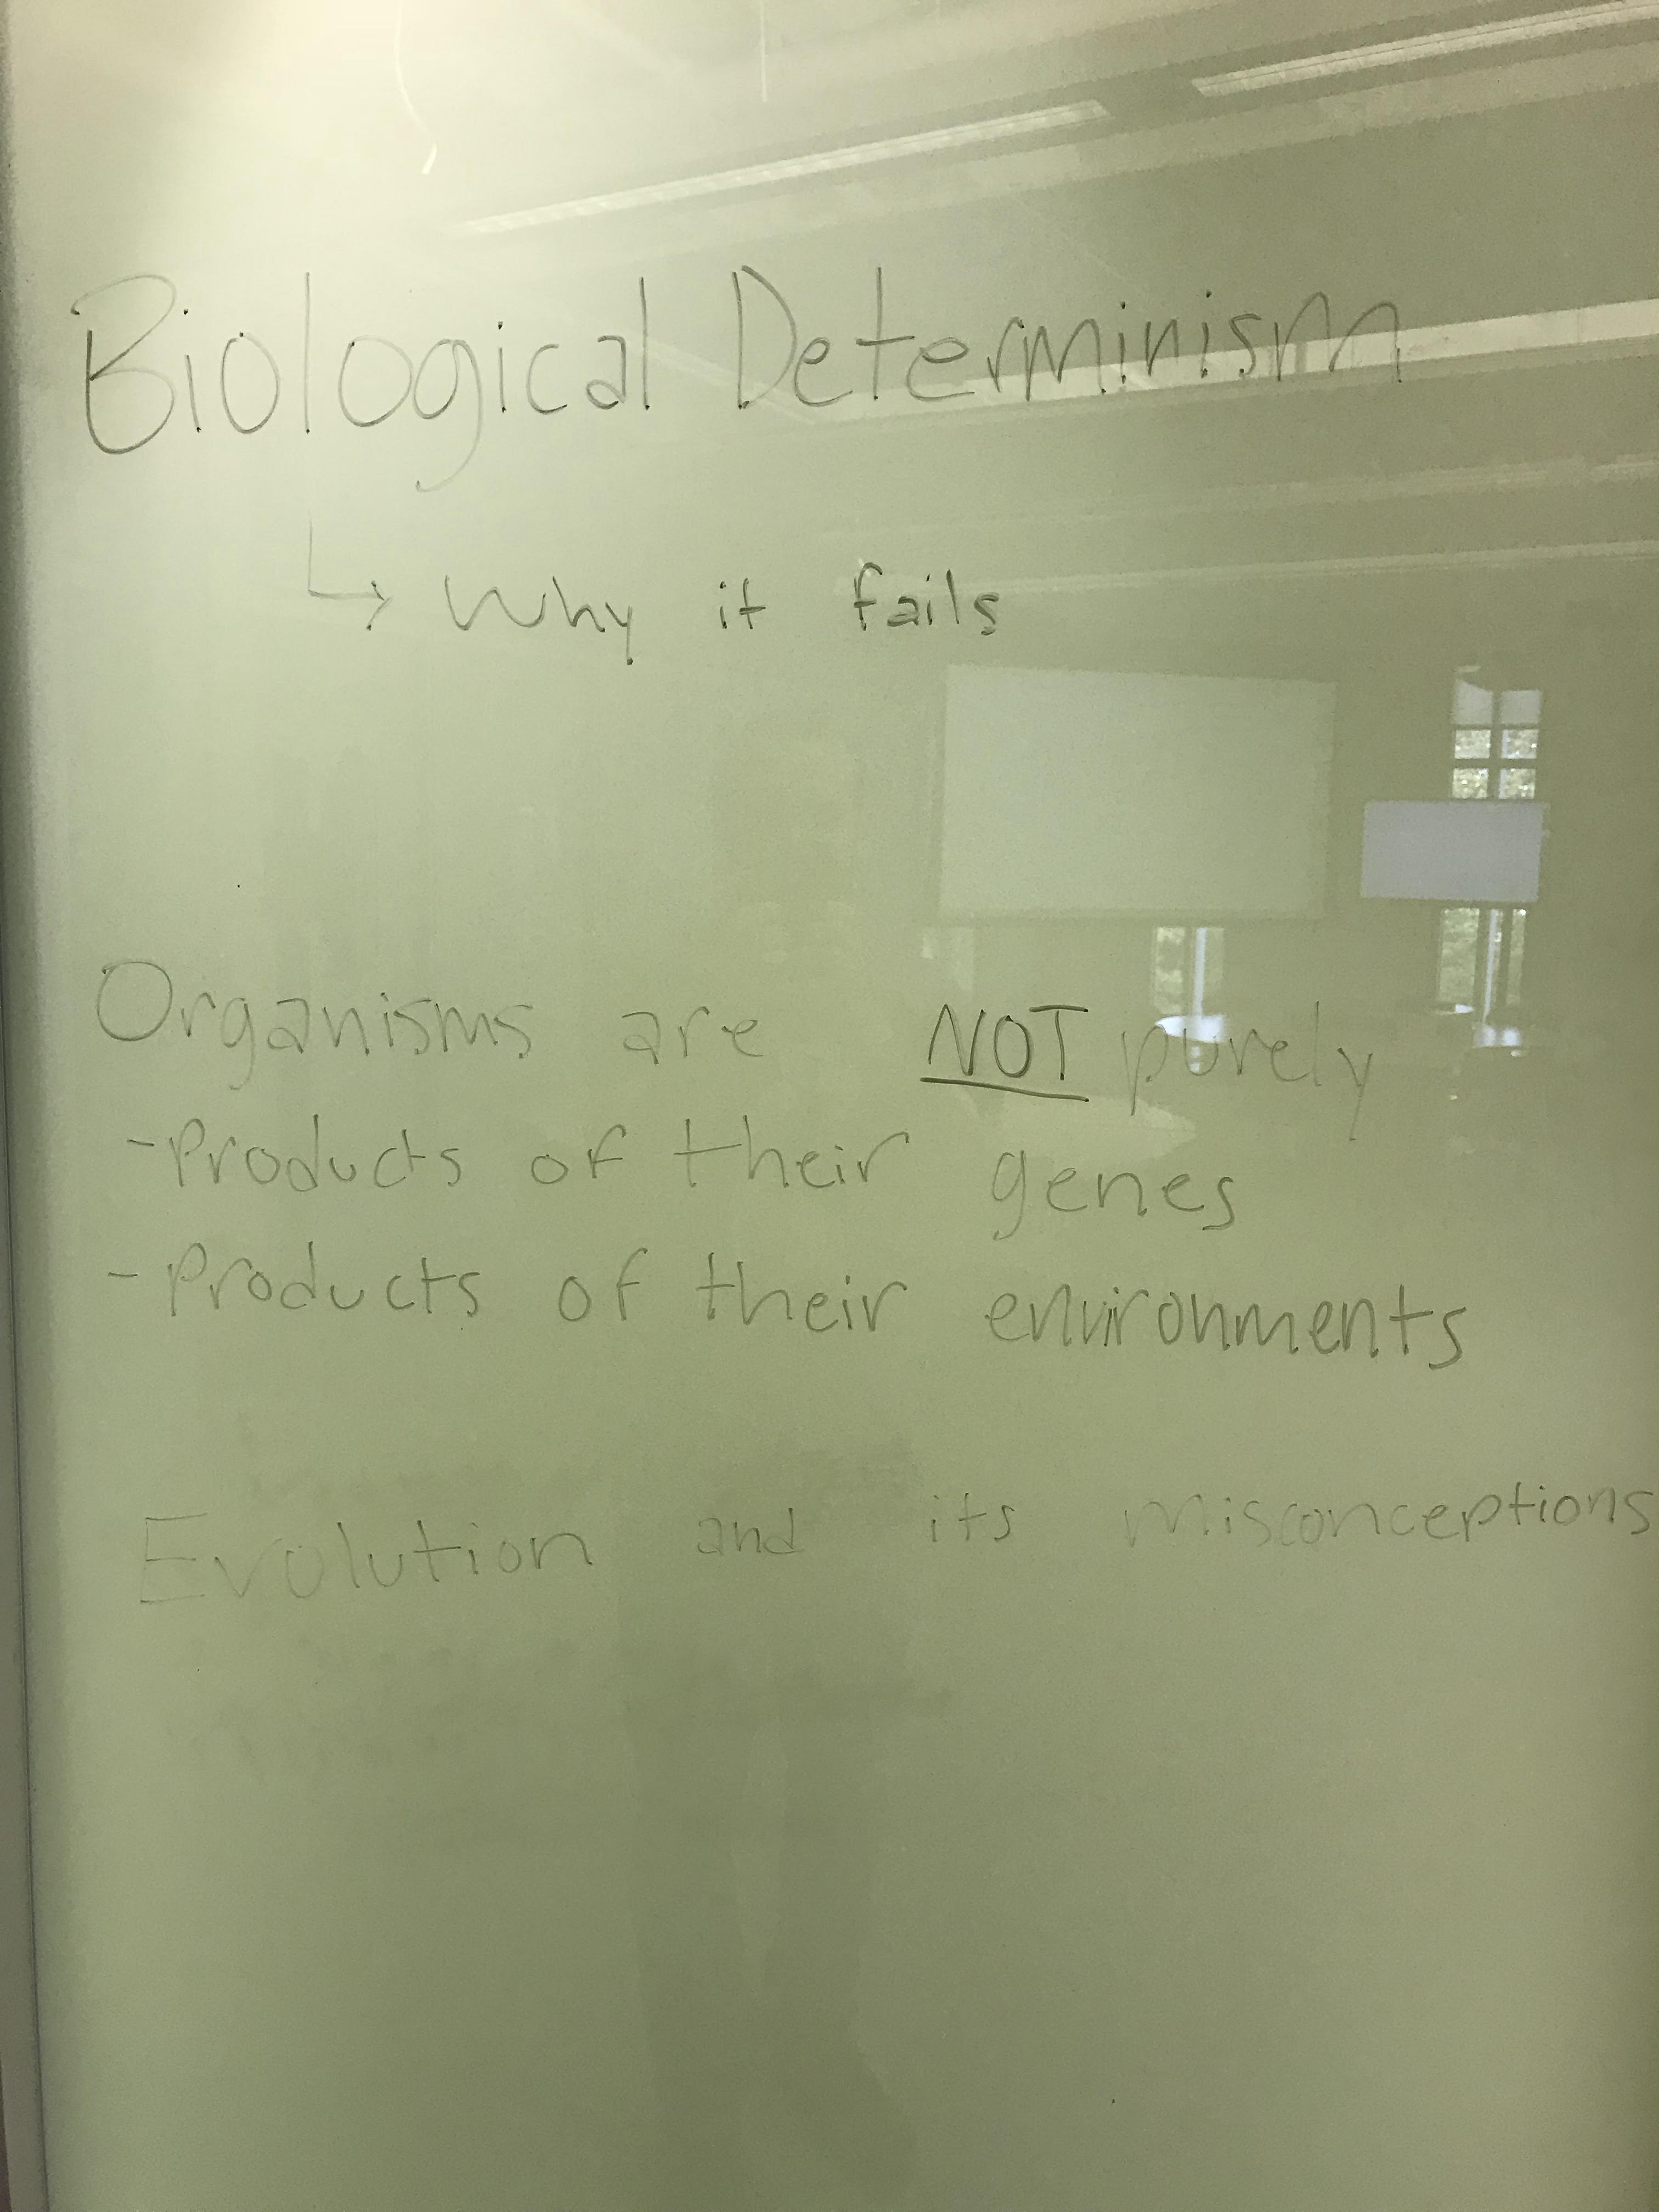 Biological Determinism
↳ Why it fails
Organisms are NOT purely
- Products of their genes
- Products of their environments
Evolution and its misconceptions